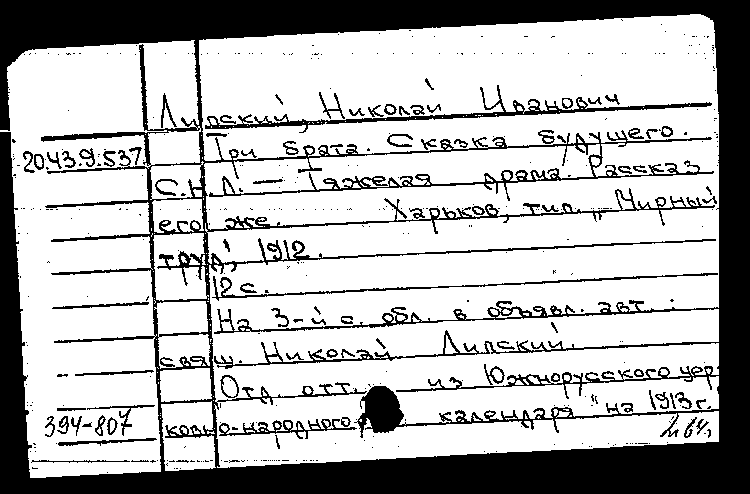 Липский, Николай Иванович
Три брата. Сказка будущего.
20.43.9.537.
С.Н.Л. — Тяжелая драма. Рассказ
его же. Харьков, тип. „Мирный
труд", 1912.
12 с.
На 3-й с. обл. в объявл. авт.:
свящ. Николай Липский.
"Отд. отт. из Южнорусского цер
394-807
ковно-народного календаря" на 1913 г.